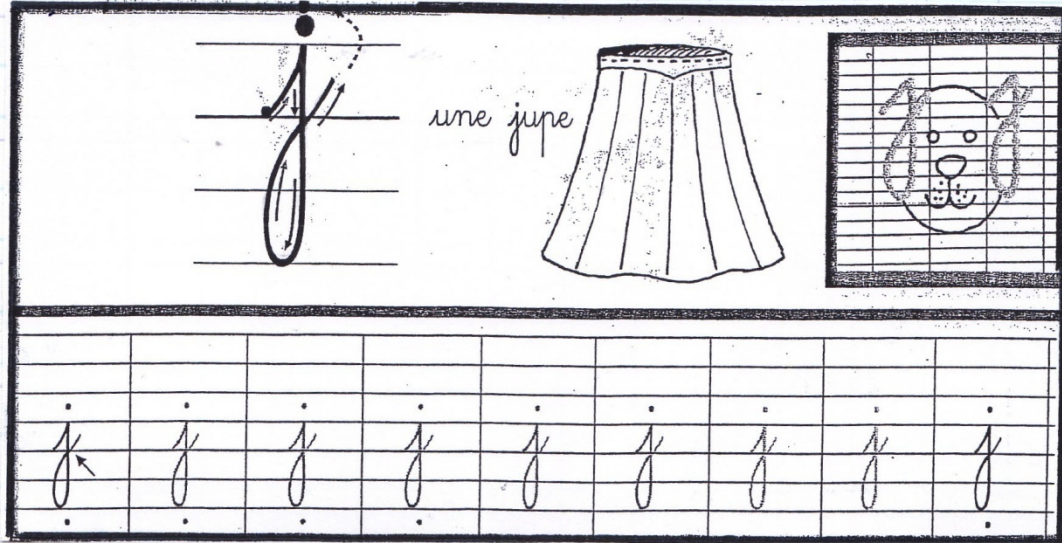 j
une jupe
j j j j j j j j j